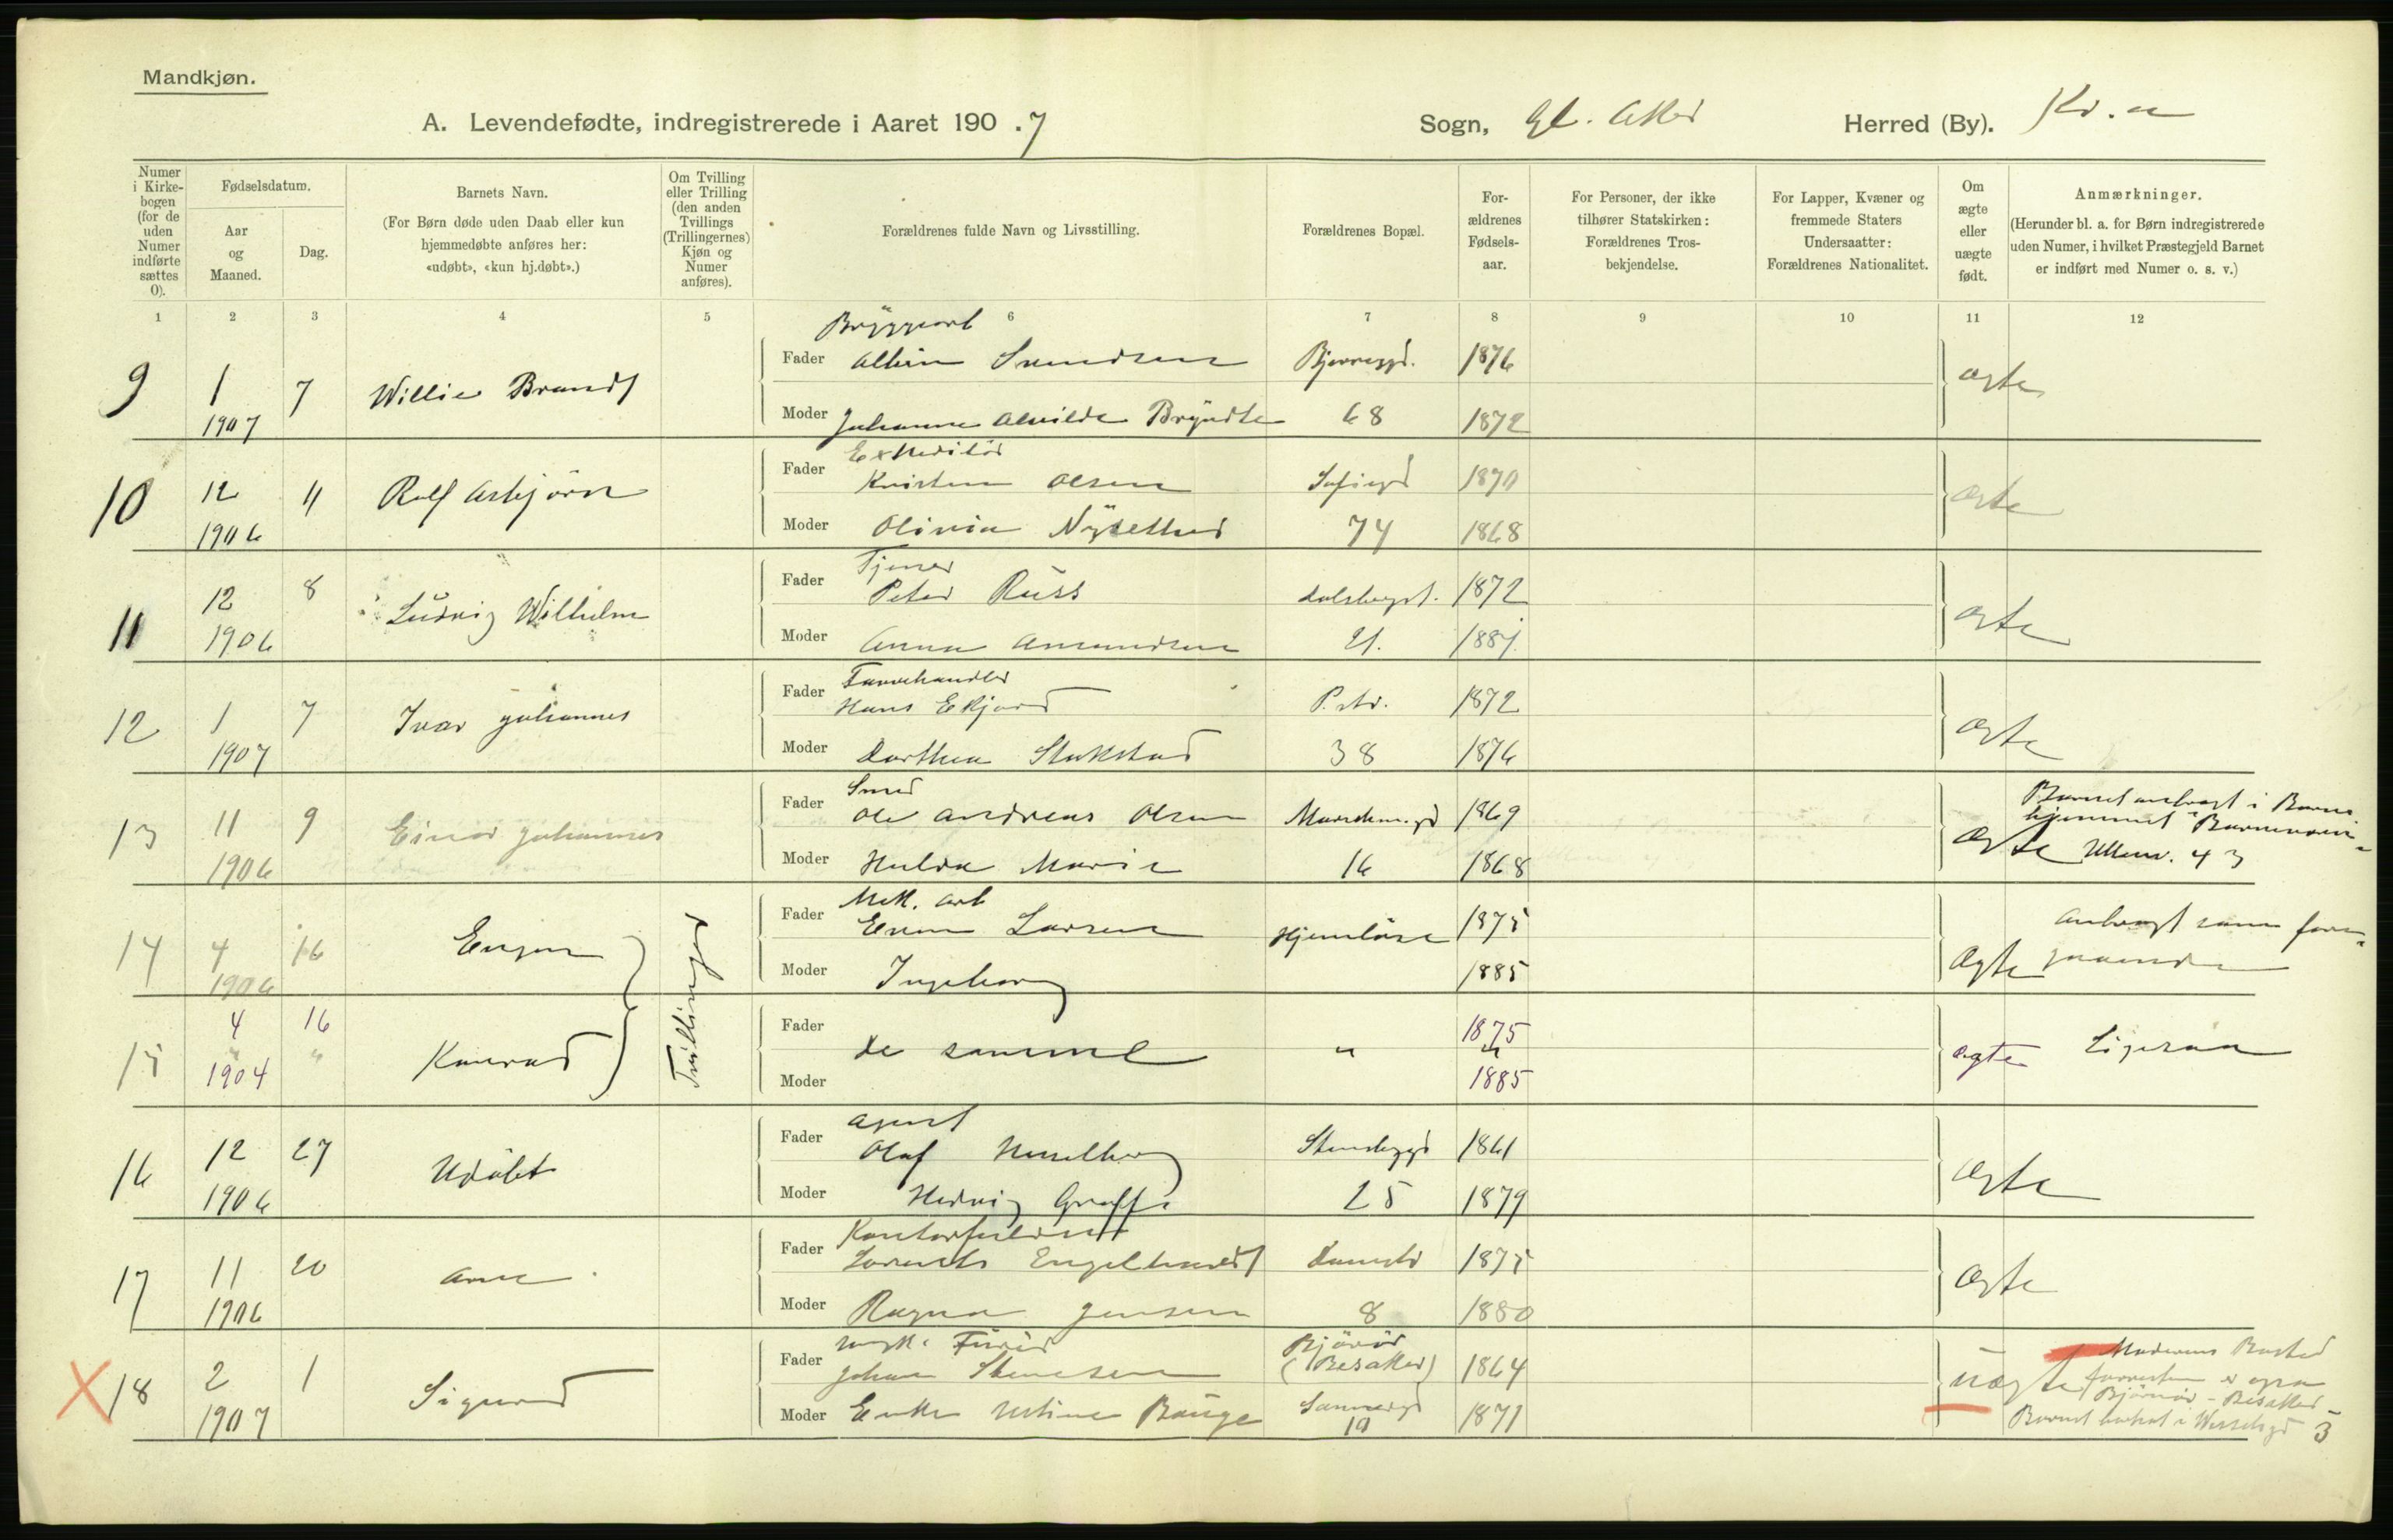 Mandkjøn.
A. Levendefødte, indregistrerede i Aaret 190.7 Sogn, Gl. Aker Herred (By). Kr.a
Numer i Kirkebogen (for de uden Numer indførte sættes 0).
Fødselsdatum.
Aar og Maaned.
Dag.
Barnets Navn.
(For Børn døde uden Daab eller kun hjemmedøbte anføres her: «udøbt», «kun hj.døbt».)
Om Tvilling eller Trilling (den anden Tvillings (Trillingernes) Kjøn og Numer anføres).
Forældrenes fulde Navn og Livsstilling.
Forældrenes Bopæl.
Forældrenes Fødselsaar.
For Personer, der ikke tilhører Statskirken: Forældrenes Trosbekjendelse.
For Lapper, Kvæner og fremmede Staters Undersaatter: Forældrenes Nationalitet.
Om ægte eller uægte født.
Anmærkninger.
(Herunder bl. a. for Børn indregistrerede uden Numer, i hvilket Præstegjeld Barnet er indført med Numer o. s. v.)
1 2 3 4 5 6 7 8 9 10 11 12
Bryggearb
9 1 7 Willie Brandt Fader Albin Svendsen 1876 ægte
1907 Moder Johanne Alvilde 68 1872
10 12 11 Rolf Asbjörn Fader Expeditör
Kristen Olsen Sofiegd 1870 ægte
1906 Moder Olivia 74 1868
11 12 8 Ludvig Wilhelm Fader Tjener
Peter Russ Dalsbergst. 1872 ægte
1906 Moder Anna Amundsen 21. 1881
12 1 7 Ivar Johannes Fader Farvehandler
Hans P. str. 1872 ægte
1907 Moder Dorthea Stokstad 38 1876
13 11 9 Einar Johannes Fader Smed
Ole Andreas Olsen 1869 ægte Barnet anbragt i Barne
hjemmet
1906 Moder Hulda Marie 16 1868 Ullev. 43
14 4 16 Eugen Tvillinger Fader Mek. arb
Larsen Hjemløse 1875 ægte Anbragt som fore-
gaaende
1906 Moder Ingeborg 1885
15 4 16 Konrad Fader de samme " 1875 ægte Ligesaa
" "
1904 Moder 1885
16 12 27 Udöbt Fader Agent
Olaf Stensbggd 1861 ægte
1906 Moder Hedvig 25 1879
17 11 20 Arne Fader Kontorfuldm
Lorentz Engelhardt Damstr 1875 ægte
1906 Moder Ragna Jensen 8 1880
X 18 2 1 Sigurd Fader Furér
Johan Stenesen Björnör
(Besaker) 1864 uægte Moderens Bosted
forresten er ogsaa
Björnör - Besaker
1907 Moder Sannergd
10 1871 Barnet bortsat i Wesselsgd 3